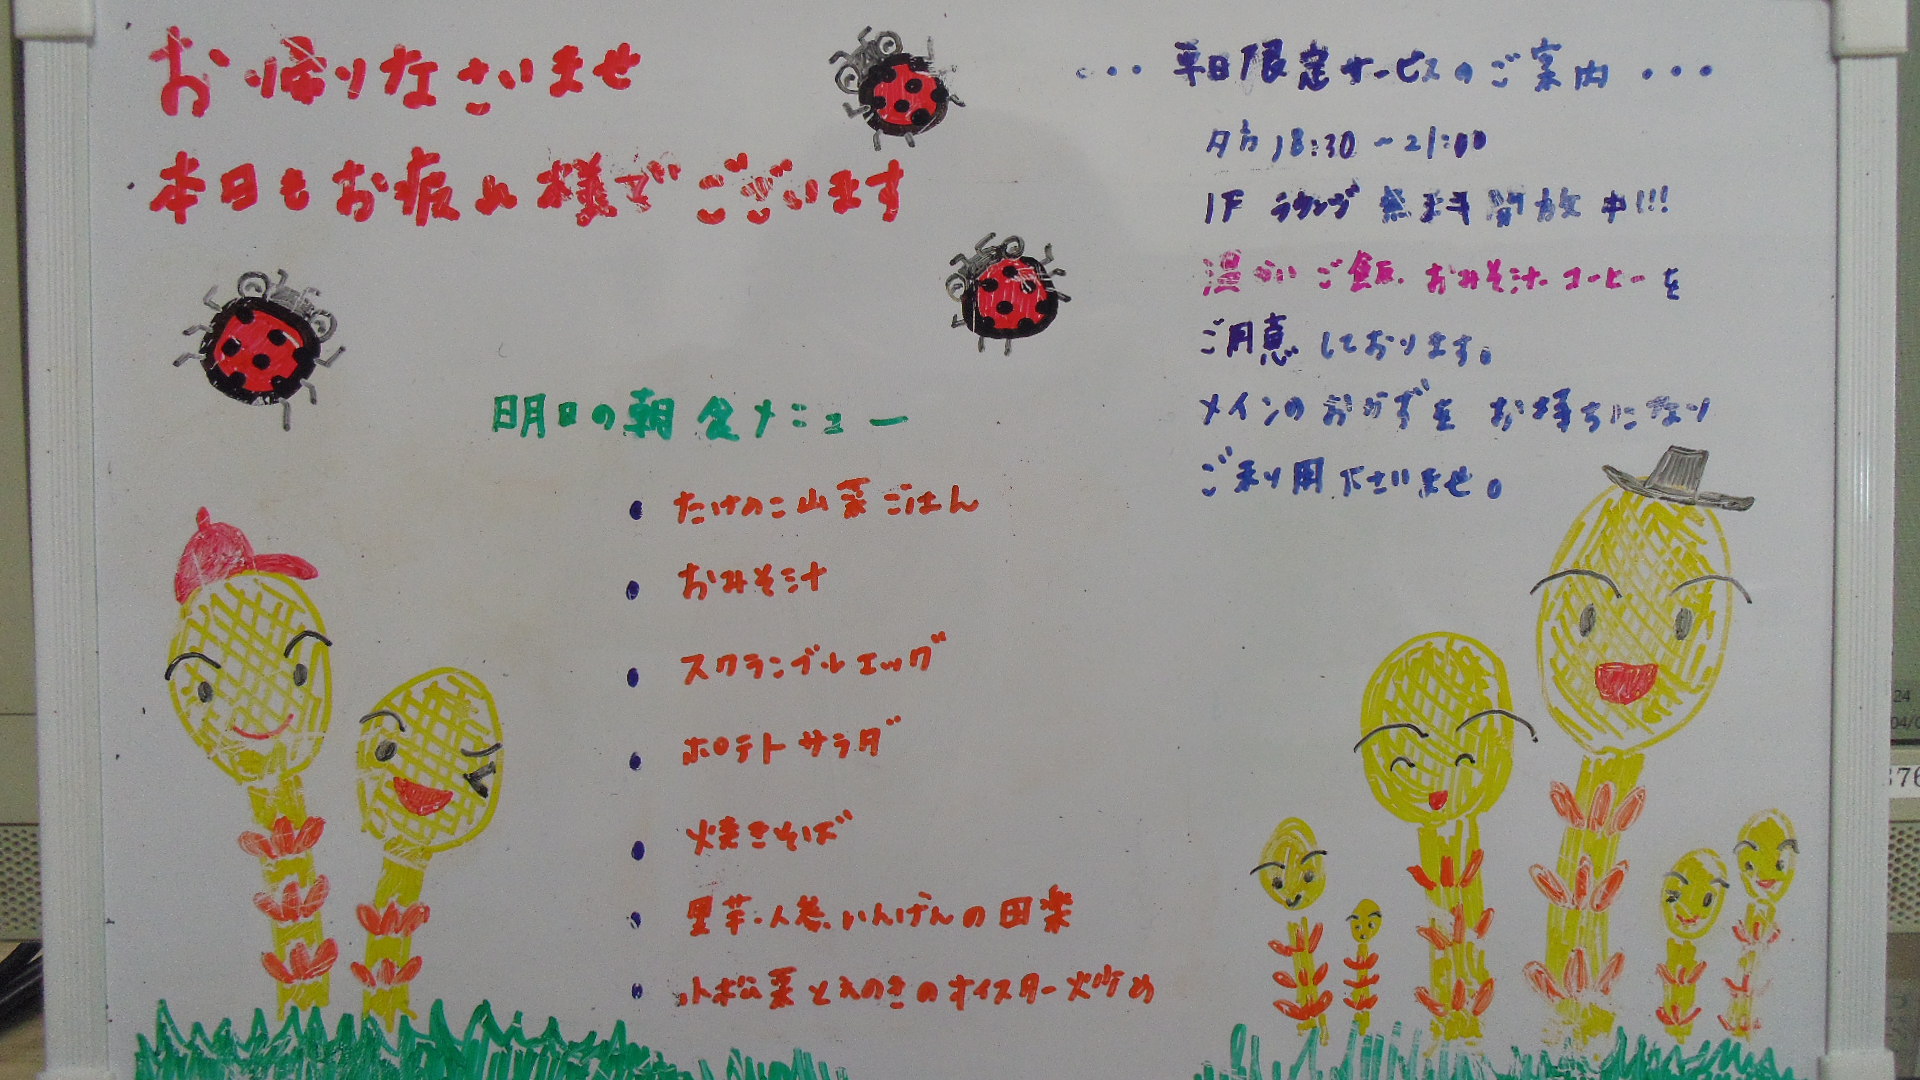 お帰りなさいませ
本日もお疲れ様でございます
明日の朝食メニュー
・たけのこ山菜ごはん
・おみそ汁
・スクランブルエッグ
・ポテトサラダ
・焼きそば
・里芋・人参・いんげんの田楽
・小松菜とえのきのオイスター炒め
・・・平日限定サービスのご案内・・・
夕方18:30~21:00
1Fラウンヅ無料開放中!!!
温かいご飯・おみそ汁・コーヒーを
ご用意しております。
メインのおかずをお持ちになり
ご利用下さいませ。
24
04/0
376